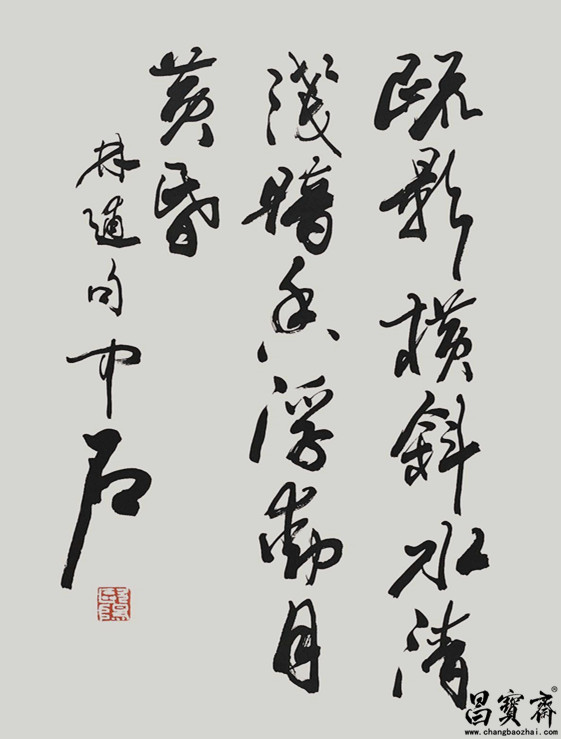 疏影橫斜水清
淺暗香浮動月
黃昏
林逋句中石
昌寶齋®
www.changbaozhai.com